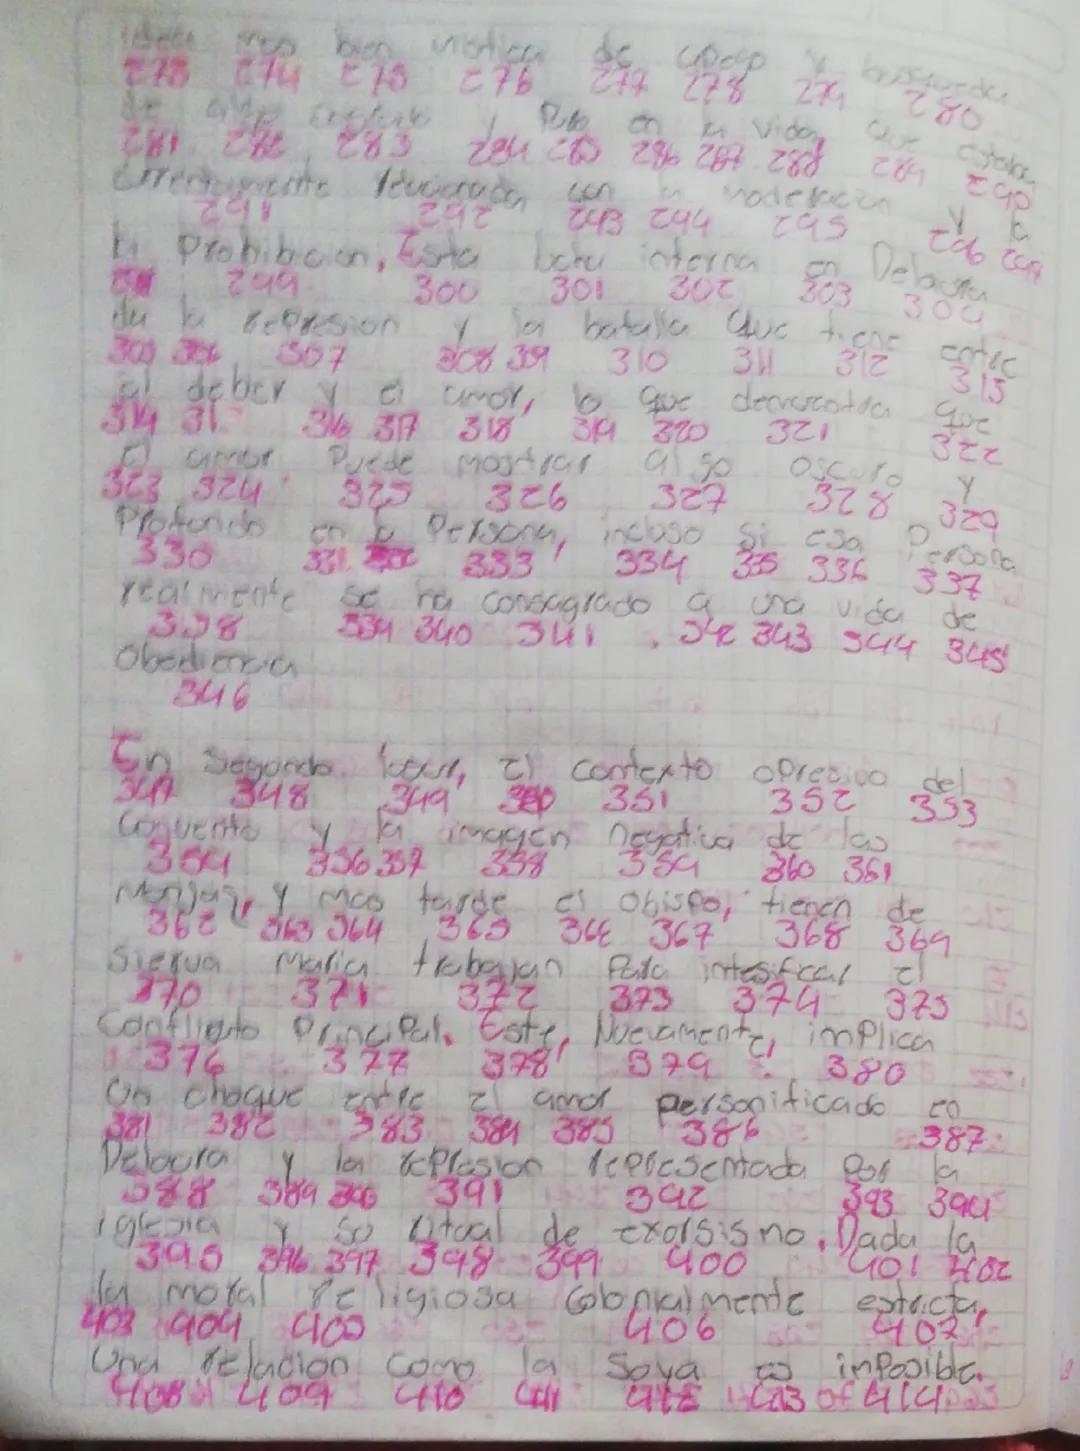 idea mas bien mistica de apego y busqueda
273 274 275 276 277 278 279 280
de algo y Puso en su vida, que estaba
281 282 283 284 285 286 287 288 289 290
relacionada con la moderacion y la
291 292 293 294 295 296 297
la Prohibicion. Esta interna en Delaura
299 300 301 302 303 304
da la represion y la batalla que tiene entre
305 306 307 308 309 310 311 312 313
el deber y el amor, lo que demuestra que
314 315 316 317 318 319 320 321 322
El amor Puede mostrar algo oscuro y
323 324 325 326 327 328 329
Profundo en la Persona, incluso si esa Persona
330 331 332 333 334 335 336 337
realmente se ha consagrado a una vida de
338 339 340 341 342 343 344 345
Obediencia
346
En segundo lugar, el contexto opresivo del
347 348 349 350 351 352 353
Convento y la imagen negativa de las
354 356 357 358 359 360 361
Monjas, y mas tarde el obispo, tienen de
362 363 364 365 366 367 368 369
Sierva Maria trabajan Para intesificar el
370 371 372 373 374 375
Conflicto Principal. Este, Nuevamente, implica
376 377 378 379 380
Un choque entre el amor personificado en
381 382 383 384 385 386 387
Delaura y la represion representada Por la
388 389 390 391 392 393 394
iglesia y so ritual de exorsismo. Dada la
395 396 397 398 399 400 401 402
la moral religiosa colonialmente estricta,
403 404 405 406 407
Una relacion como la Suya es imposible.
408 409 410 411 412 413 of 414